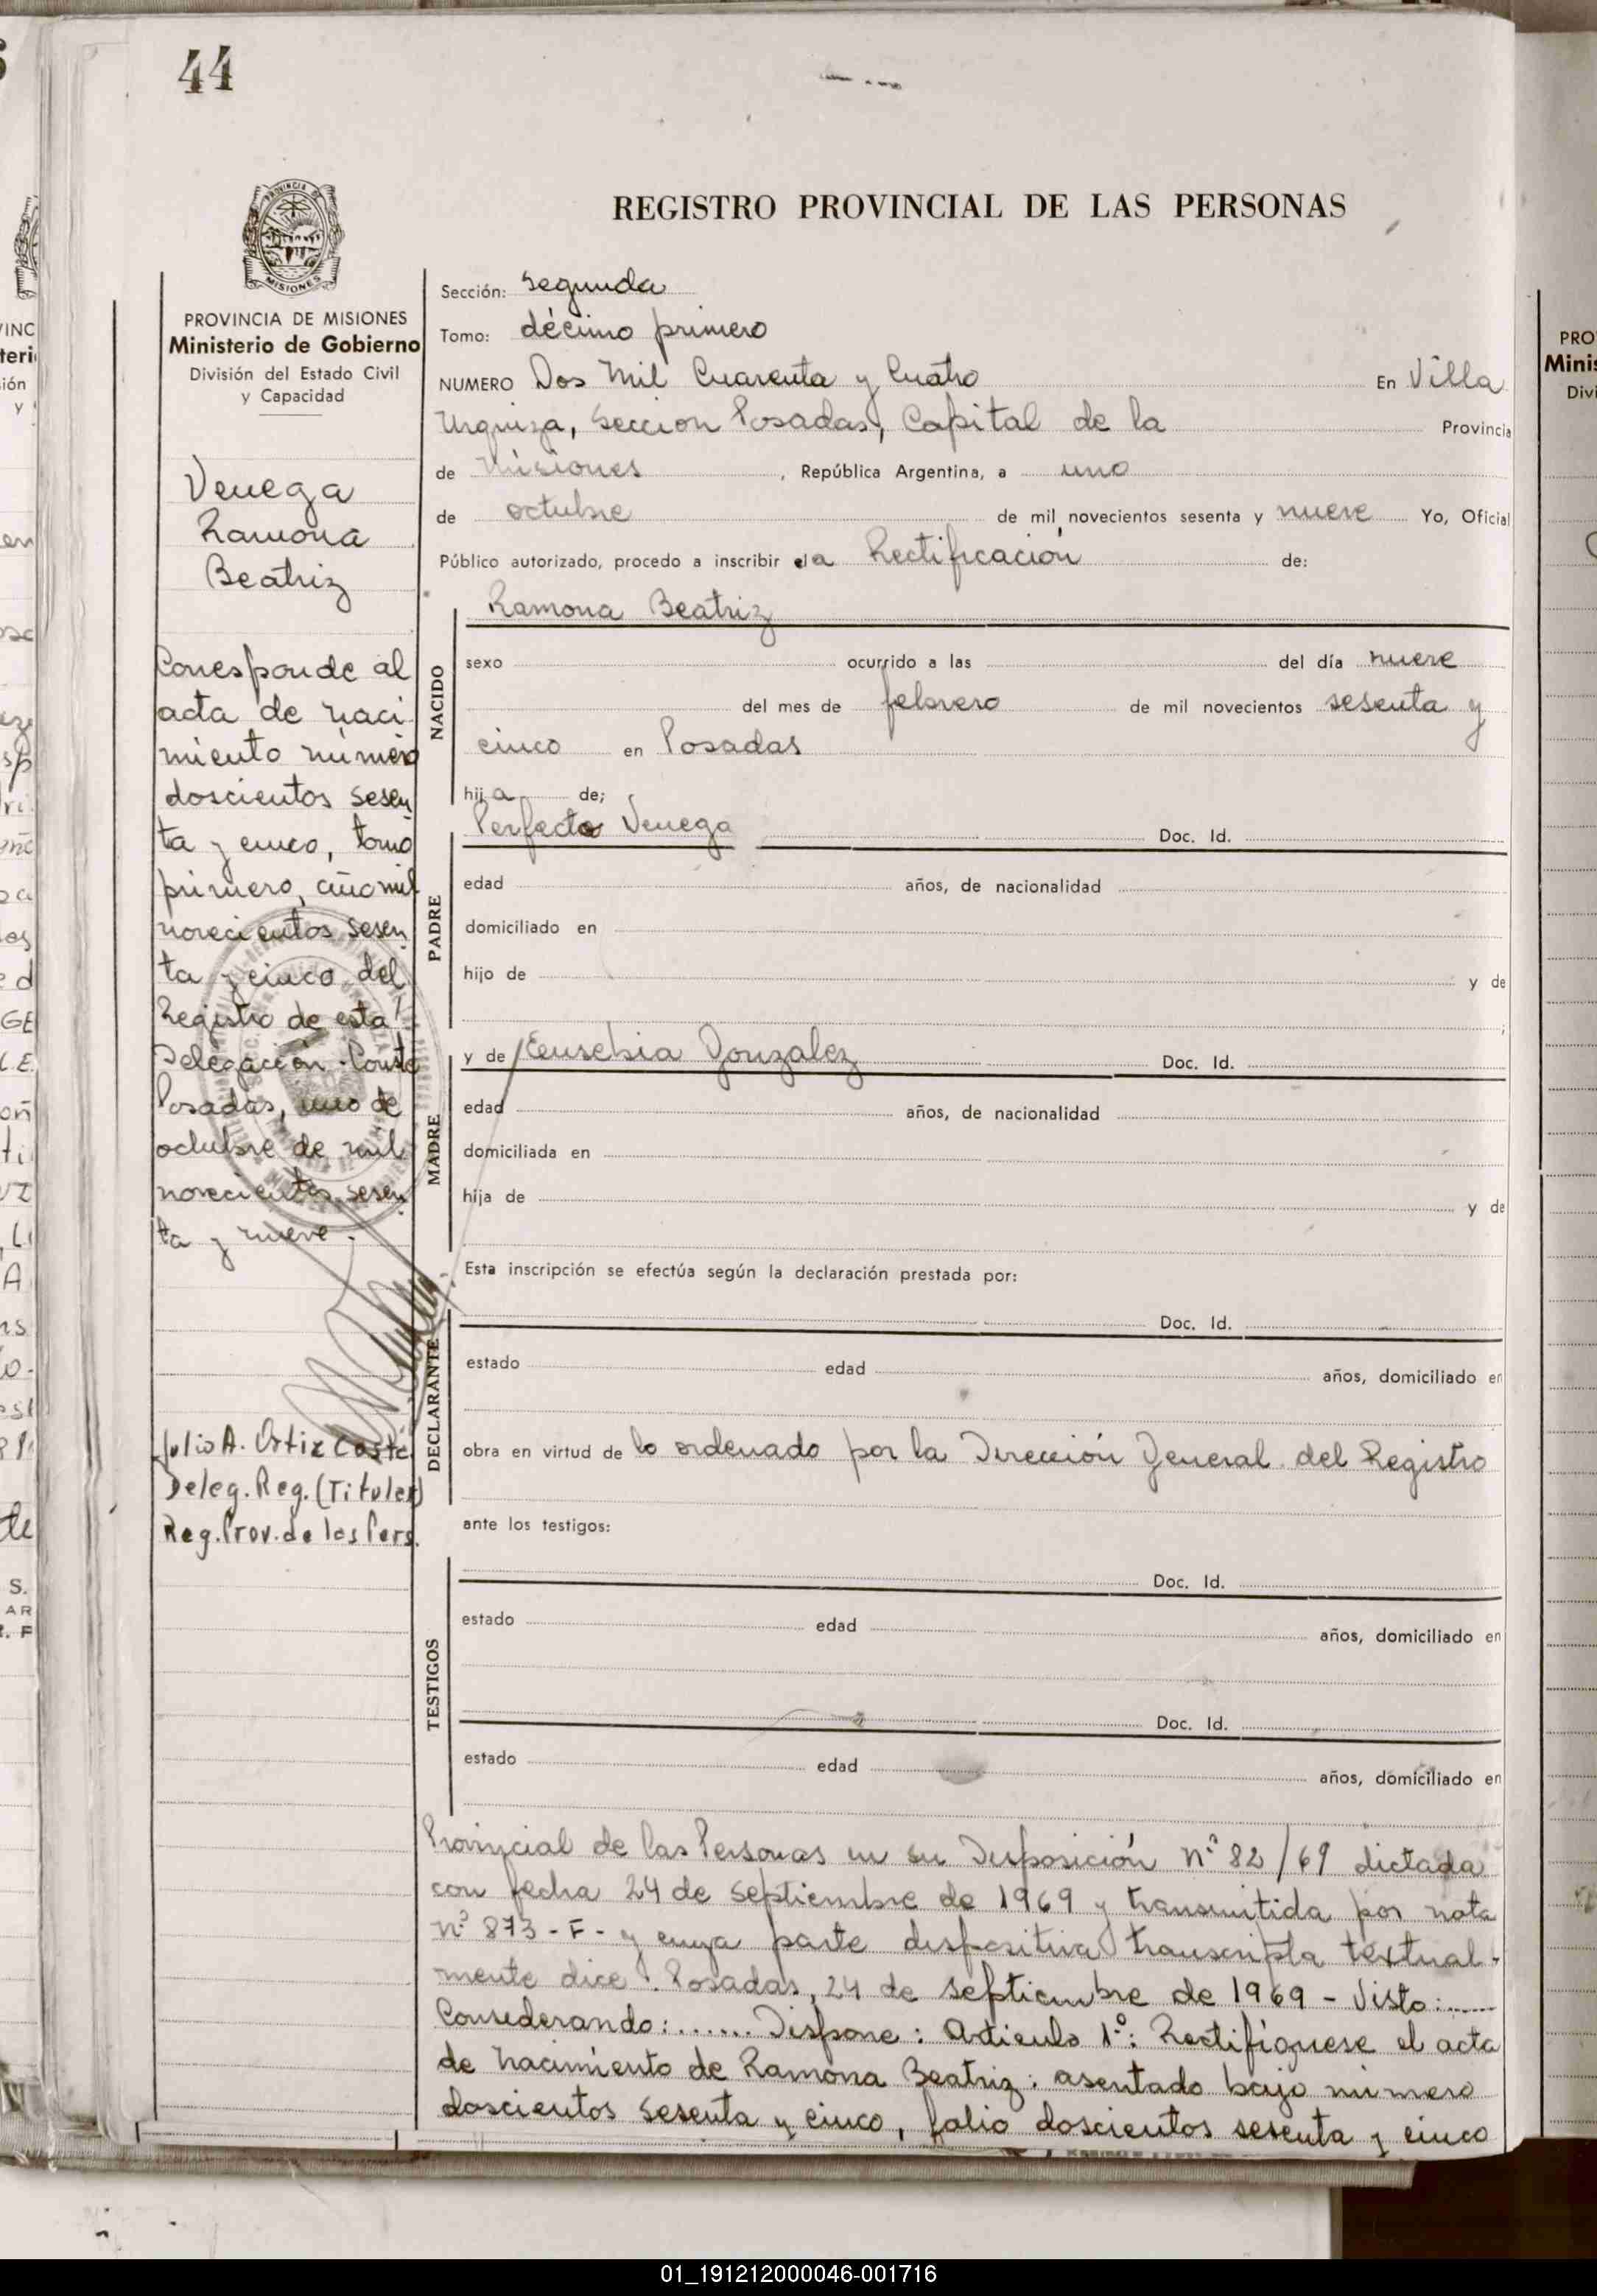 44
REGISTRO PROVINCIAL DE LAS PERSONAS
PROVINCIA DE MISIONES
Ministerio de Gobierno
División del Estado Civil
y Capacidad
Venega
Ramona
Beatriz
Corresponde al
acta de naci
miento número
doscientos sesen
ta y cinco, tomo
primero, año mil
novecientos sesen
ta y cinco del
Registro de esta
Delegación. Conste
Posadas, uno de
octubre de mil
novecientos sesen
ta y nueve.
Julio A. Ortiz Coste
Deleg. Reg. (Titular)
Reg. Prov. de las Pers.
Sección: segunda
Tomo: décimo primero
NUMERO Dos Mil Cuarenta y Cuatro En Villa
Urquiza, Seccion Posadas, Capital de la Provincia
de Misiones, República Argentina, a uno
de octubre de mil novecientos sesenta y nueve Yo, Oficial
Público autorizado, procedo a inscribir la Rectificación de:
NACIDO
Ramona Beatriz
sexo ocurrido a las del día nueve
del mes de febrero de mil novecientos sesenta y
cinco en Posadas
hija de;
PADRE
Perfecto Venega Doc. Id.
edad años, de nacionalidad
domiciliado en
hijo de y de
MADRE
y de Eusebia Gonzalez Doc. Id.
edad años, de nacionalidad
domiciliada en
hija de y de
Esta inscripción se efectúa según la declaración prestada por:
DECLARANTE
Doc. Id.
estado edad años, domiciliado en
obra en virtud de lo ordenado por la Dirección General del Registro
ante los testigos:
TESTIGOS
Doc. Id.
estado edad años, domiciliado en
Doc. Id.
estado edad años, domiciliado en
Provincial de las Personas en su Disposición nº 82/69 dictada
con fecha 24 de septiembre de 1969 y transmitida por nota
nº 873-F- y cuya parte dispositiva transcripta textual-
mente dice: Posadas, 24 de septiembre de 1969 - Visto:......
Considerando:...... Dispone: Articulo 1º: Rectifíquese el acta
de nacimiento de Ramona Beatriz: asentado bajo número
doscientos sesenta y cinco, folio doscientos sesenta y cinco
01_191212000046-001716